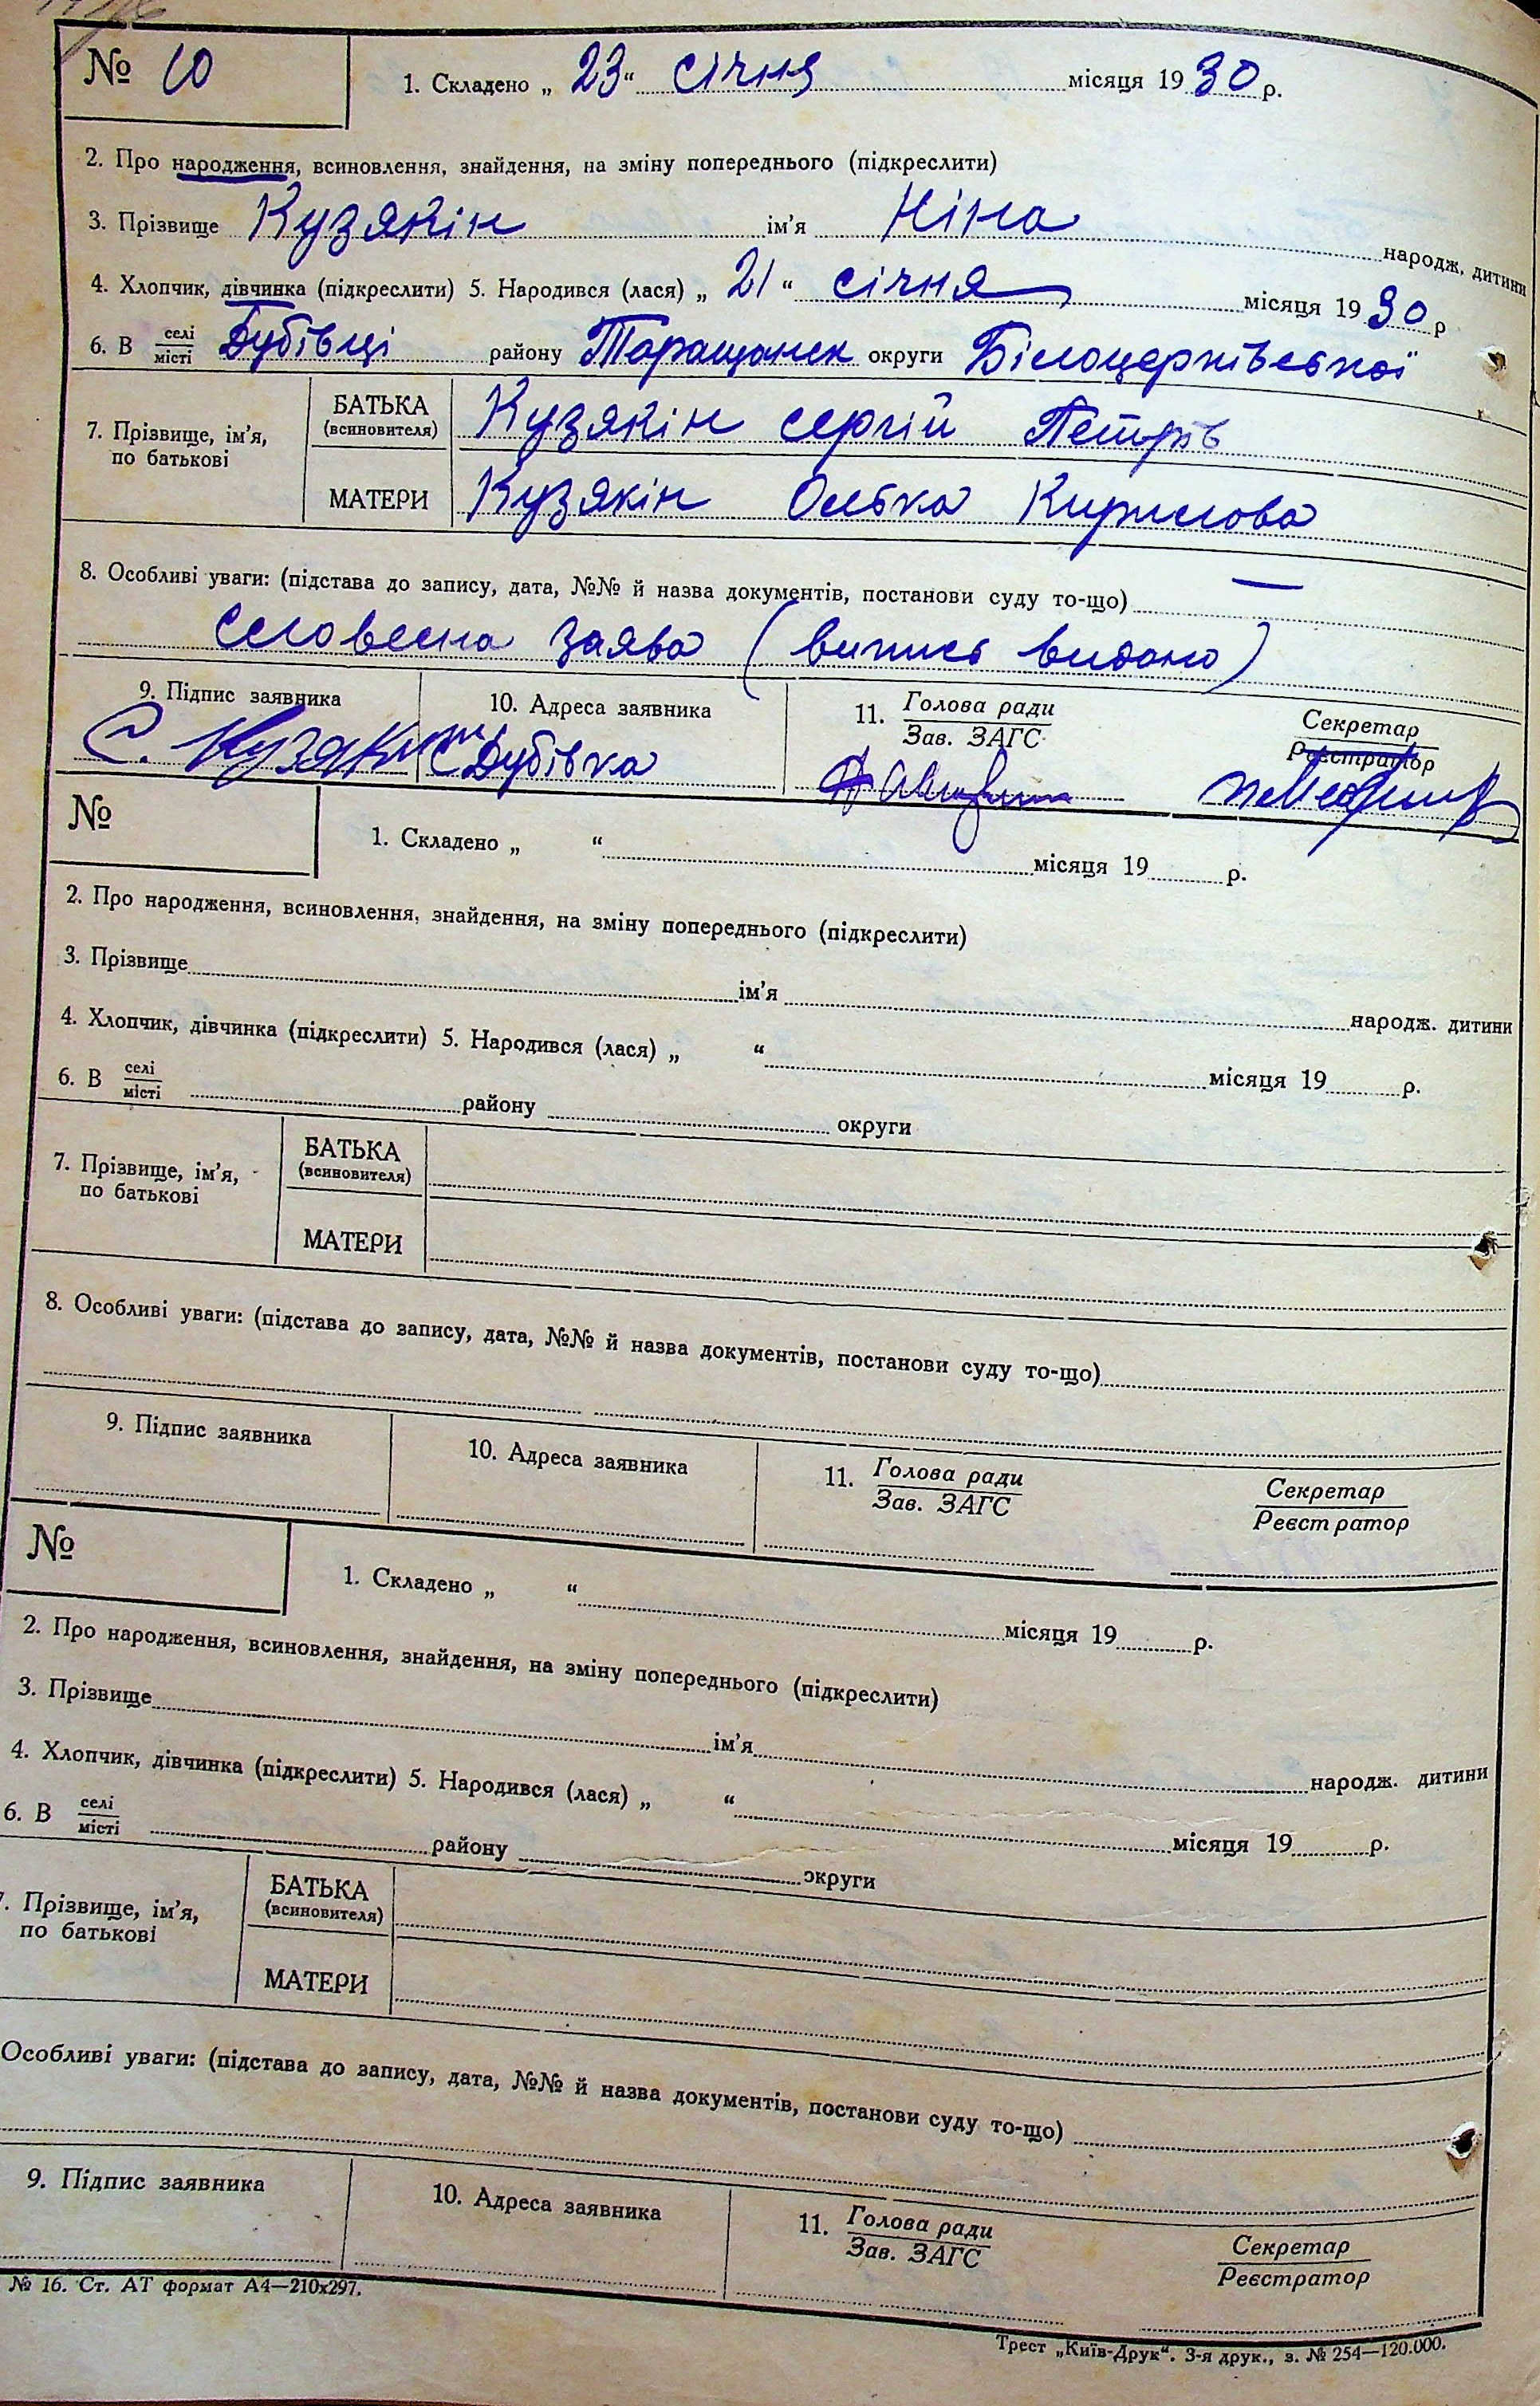 № 10
1. Складено „ 23 “ січня місяця 1930 р.
2. Про народження, всиновлення, знайдення, на зміну попереднього (підкреслити)
3. Прізвище Кузякін ім'я Ніна народж. дитини
4. Хлопчик, дівчинка (підкреслити) 5. Народився (лася) „ 21 “ січня місяця 1930 р
6. В селі місті Дубівці району Таращанск округи Білоцерківської
7. Прізвище, ім'я, по батькові
БАТЬКА (всиновителя) Кузякін Сергій Петрів
МАТЕРИ Кузякін Олька Кирилова
8. Особливі уваги: (підстава до запису, дата, №№ й назва документів, постанови суду то-що) —
Словесна заява (випись видано)
9. Підпис заявника 10. Адреса заявника 11. Голова ради Зав. ЗАГС Секретар Реєстратор
С. Кузякин с Дубівка
№
1. Складено „ “ місяця 19 р.
2. Про народження, всиновлення, знайдення, на зміну попереднього (підкреслити)
3. Прізвище ім'я народж. дитини
4. Хлопчик, дівчинка (підкреслити) 5. Народився (лася) „ “ місяця 19 р.
6. В селі місті району округи
7. Прізвище, ім'я, по батькові
БАТЬКА (всиновителя)
МАТЕРИ
8. Особливі уваги: (підстава до запису, дата, №№ й назва документів, постанови суду то-що)
9. Підпис заявника 10. Адреса заявника 11. Голова ради Зав. ЗАГС Секретар Реєстратор
№
1. Складено „ “ місяця 19 р.
2. Про народження, всиновлення, знайдення, на зміну попереднього (підкреслити)
3. Прізвище ім'я народж. дитини
4. Хлопчик, дівчинка (підкреслити) 5. Народився (лася) „ “ місяця 19 р.
6. В селі місті району округи
. Прізвище, ім'я, по батькові
БАТЬКА (всиновителя)
МАТЕРИ
Особливі уваги: (підстава до запису, дата, №№ й назва документів, постанови суду то-що)
9. Підпис заявника 10. Адреса заявника 11. Голова ради Зав. ЗАГС Секретар Реєстратор
№ 16. Ст. АТ формат А4—210х297.
Трест „Київ-Друк“. 3-я друк., з. № 254—120.000.